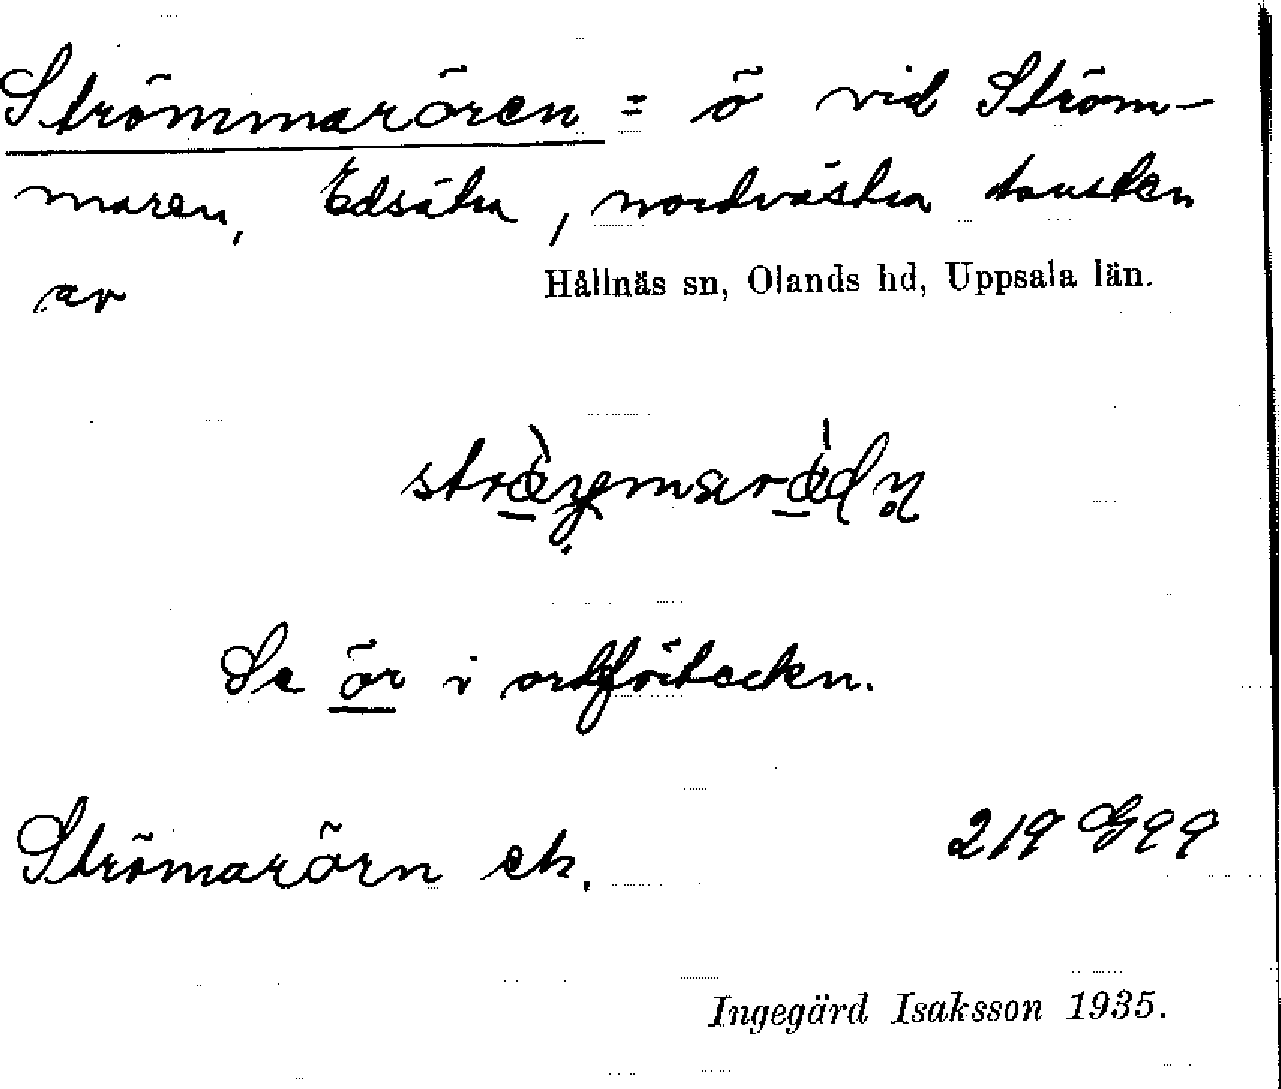 Strömmarören = ö vid Ström-
maren, Edsätra, nordvästra kusten
av Hållnäs sn, Olands hd, Uppsala län.
Se ör i ortförteckn.
Strömarörn ek. 219 G99
Ingegärd Isaksson 1935.